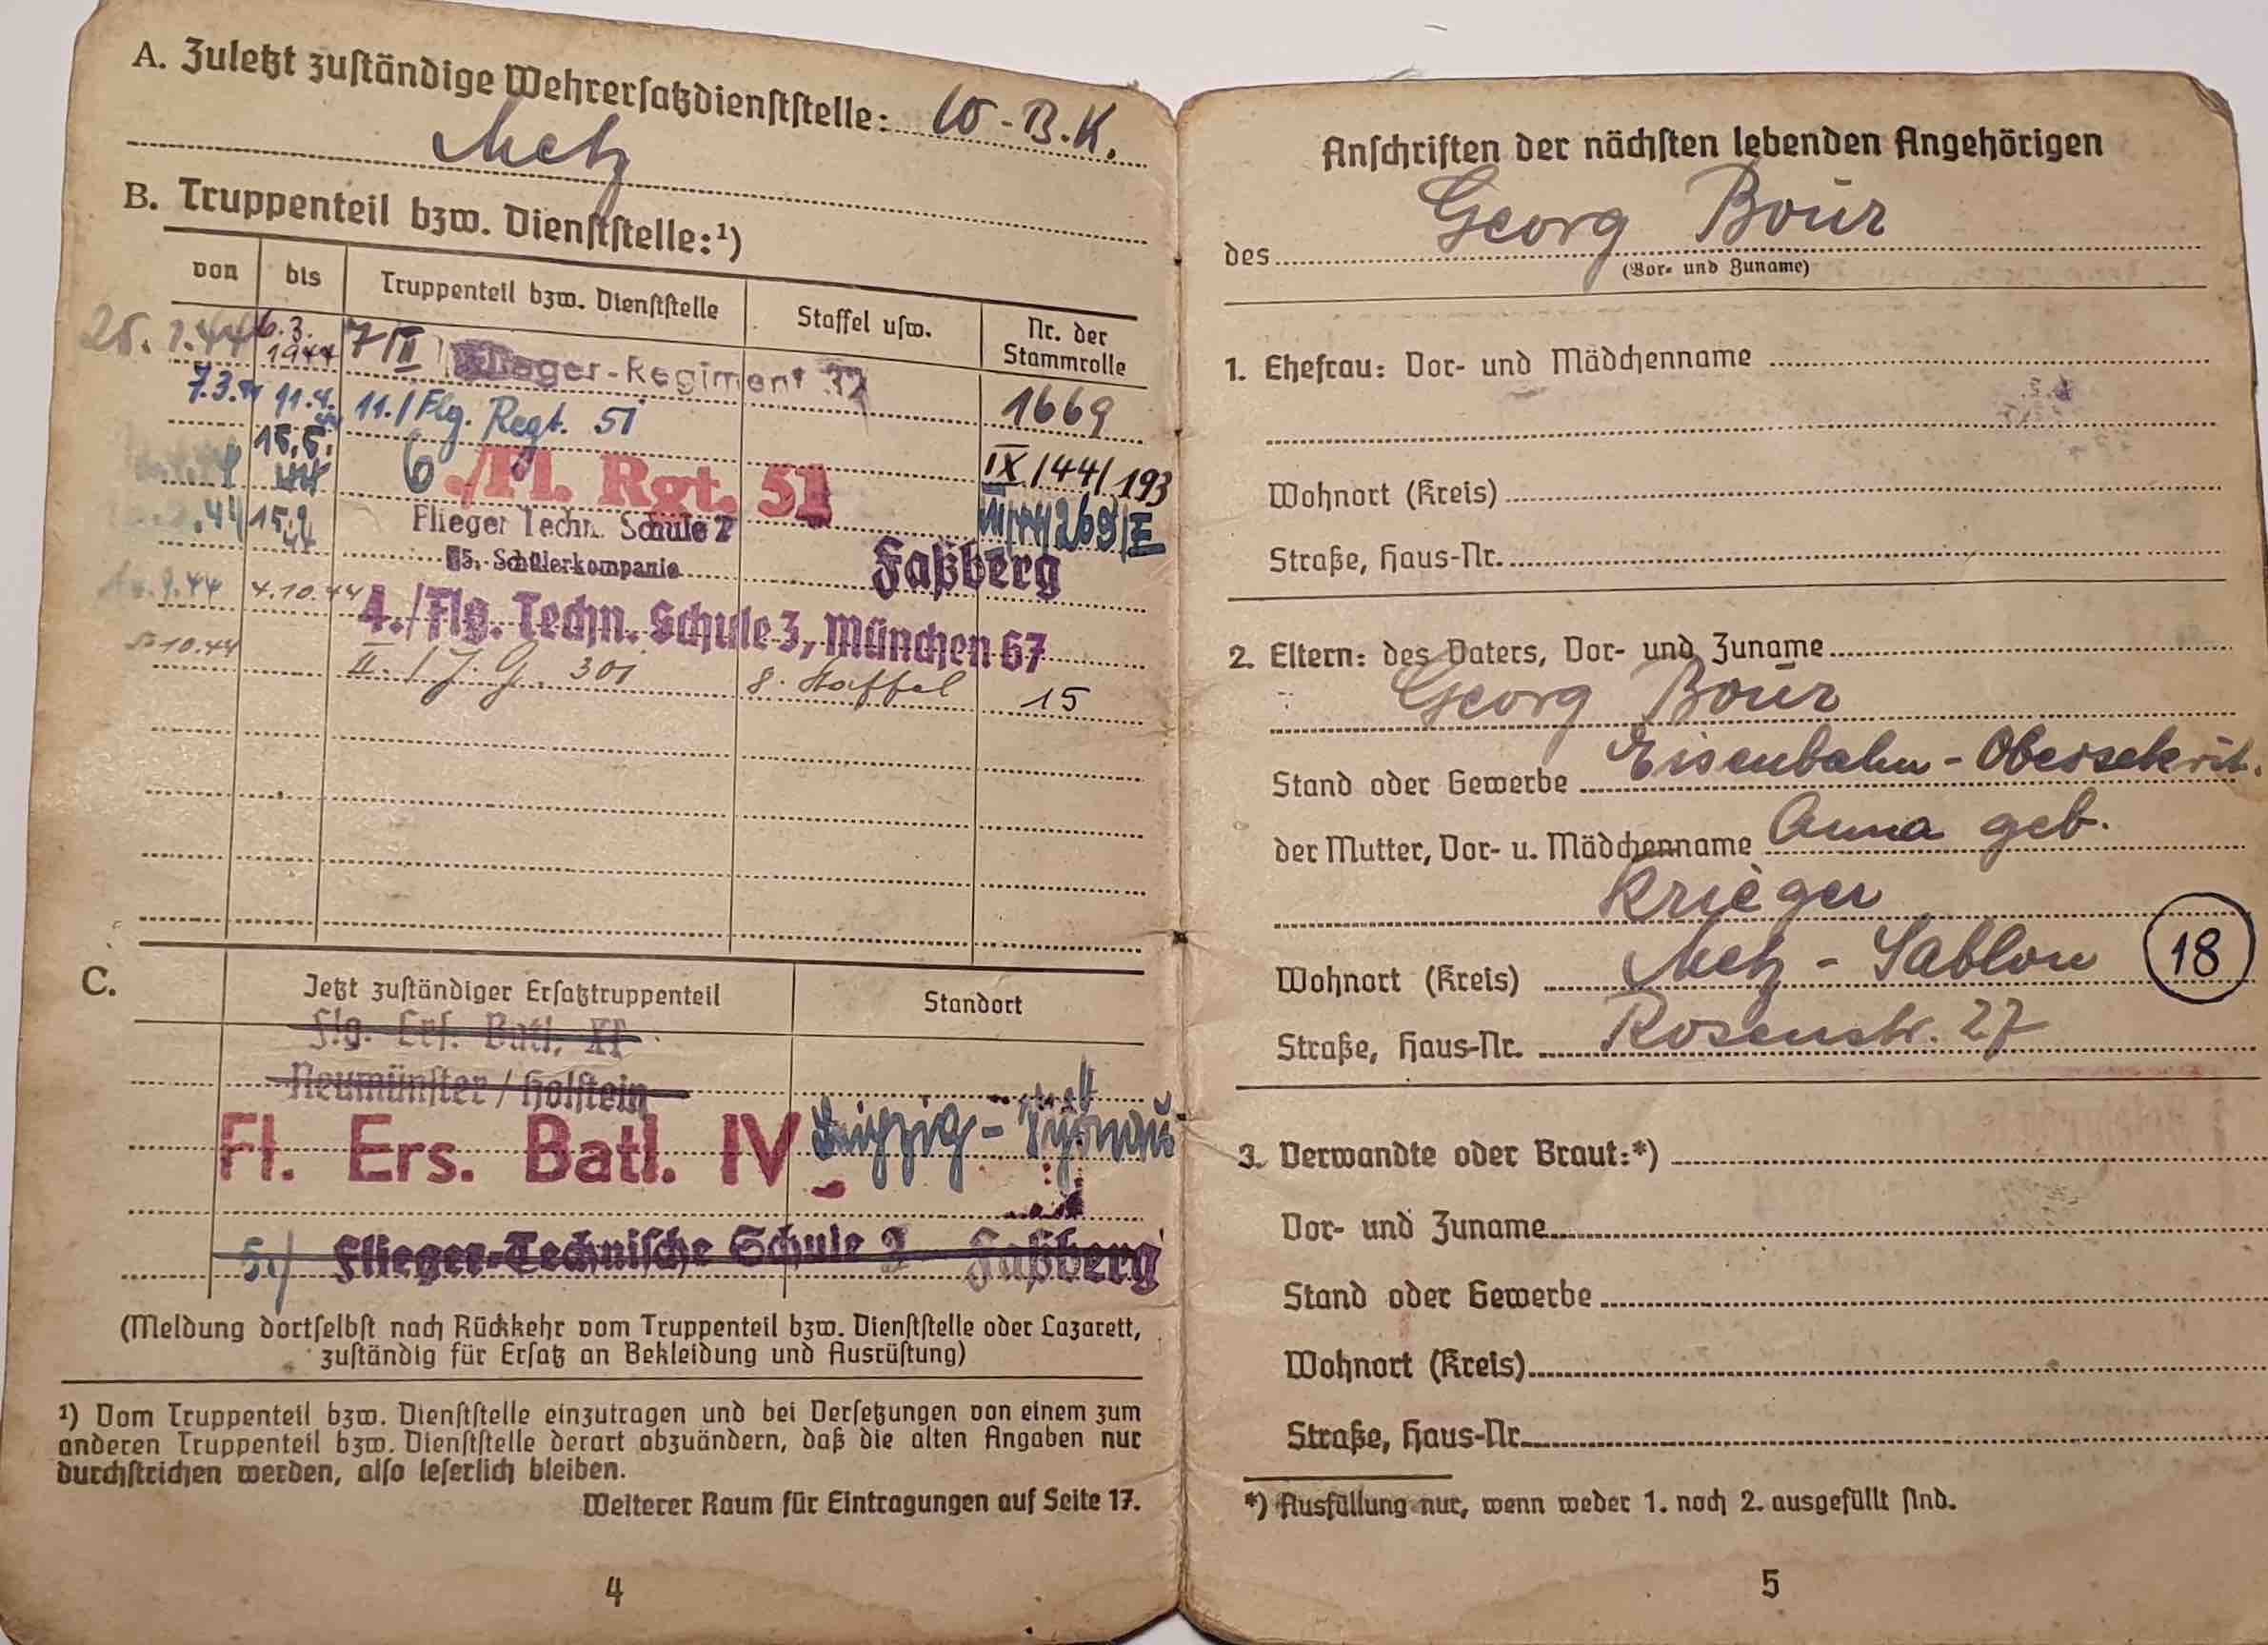 A. Zuletzt zuständige Wehrersatzdienststelle: W-B.K.
Metz
B. Truppenteil bzw. Dienststelle:¹)
von bis Truppenteil bzw. Dienststelle Staffel usw. Nr. der Stammrolle
6.3. 1944 7/II Flieger-Regiment 32 1669
7.3.44 11.4. 11./Flg. Regt. 51 IX/44/193
15.5. 44 6./Fl. Rgt. 51
.44 Flieger Techn. Schule 2
5. Schülerkompanie Faßberg
.9.44 4.10.44 4./Flg. Techn. Schule 3, München 67
5.10.44 II./J.G. 301 8. Staffel 15
C. Jetzt zuständiger Ersatztruppenteil Standort
Flg. Ers. Batl. XI
Neumünster / Holstein
Fl. Ers. Batl. IV Leipzig-
5./ Flieger-Technische Schule 2 Faßberg
(Meldung dortselbst nach Rückkehr vom Truppenteil bzw. Dienststelle oder Lazarett,
zuständig für Ersatz an Bekleidung und Ausrüstung)
¹) Vom Truppenteil bzw. Dienststelle einzutragen und bei Versetzungen von einem zum
anderen Truppenteil bzw. Dienststelle derart abzuändern, daß die alten Angaben nur
durchstrichen werden, also leserlich bleiben.
Weiterer Raum für Eintragungen auf Seite 17.
4
Anschriften der nächsten lebenden Angehörigen
des Georg Bour
(Vor- und Zuname)
1. Ehefrau: Vor- und Mädchenname
Wohnort (Kreis)
Straße, Haus-Nr.
2. Eltern: des Vaters, Vor- und Zuname
Georg Bour
Stand oder Gewerbe Eisenbahn-Obersekret.
der Mutter, Vor- u. Mädchenname Anna geb.
Krieger
Wohnort (Kreis) Metz-Sablon 18
Straße, Haus-Nr. Rosenstr. 27
3. Verwandte oder Braut:*)
Vor- und Zuname
Stand oder Gewerbe
Wohnort (Kreis)
Straße, Haus-Nr.
*) Ausfüllung nur, wenn weder 1. noch 2. ausgefüllt sind.
5